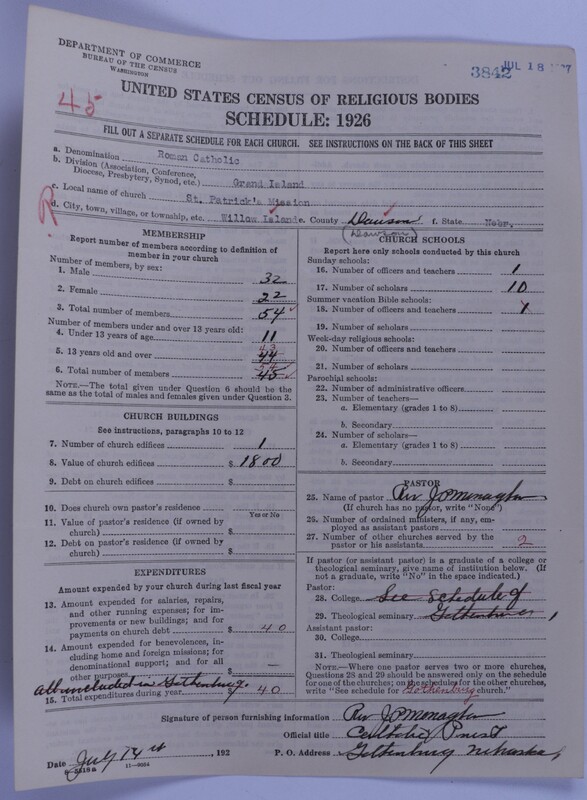 DEPARTMENT OF COMMERCE
BUREAU OF THE CENSUS
WASHINGTON
3842
JUL 18
45
UNITED STATES CENSUS OF RELIGIOUS BODIES
SCHEDULE: 1926
FILL OUT A SEPARATE SCHEDULE FOR EACH CHURCH. SEE INSTRUCTIONS ON THE BACK OF THIS SHEET
a. Denomination Roman Catholic
b. Division (Association, Conference,
Diocese, Presbytery, Synod, etc.) Grand Island
c. Local name of church St. Patrick's Mission
R
d. City, town, village, or township, etc. Willow Island e. County Dawson f. State Nebr.
(Dawson)
MEMBERSHIP
Report number of members according to definition of
member in your church
Number of members, by sex:
1. Male 32
2. Female 22
3. Total number of members 54
Number of members under and over 13 years old:
4. Under 13 years of age 11
43
5. 13 years old and over 44
54
6. Total number of members 45
NOTE.—The total given under Question 6 should be the
same as the total of males and females given under Question 3.
CHURCH BUILDINGS
See instructions, paragraphs 10 to 12
7. Number of church edifices 1
8. Value of church edifices $1800
9. Debt on church edifices $
10. Does church own pastor's residence
Yes or No
11. Value of pastor's residence (if owned by
church) $
12. Debt on pastor's residence (if owned by
church) $
EXPENDITURES
Amount expended by your church during last fiscal year
13. Amount expended for salaries, repairs,
and other running expenses; for im-
provements or new buildings; and for
payments on church debt $ 40
14. Amount expended for benevolences, in-
cluding home and foreign missions; for
denominational support; and for all
other purposes —
all included in Gothenburg.
15. Total expenditures during year $ 40
CHURCH SCHOOLS
Report here only schools conducted by this church
Sunday schools:
16. Number of officers and teachers 1
17. Number of scholars 10
Summer vacation Bible schools:
18. Number of officers and teachers
19. Number of scholars
Week-day religious schools:
20. Number of officers and teachers
21. Number of scholars
Parochial schools:
22. Number of administrative officers
23. Number of teachers—
a. Elementary (grades 1 to 8)
b. Secondary
24. Number of scholars—
a. Elementary (grades 1 to 8)
b. Secondary
PASTOR
25. Name of pastor Rev J P Monaghan
(If church has no pastor, write "None")
26. Number of ordained ministers, if any, em-
ployed as assistant pastors
27. Number of other churches served by the
pastor or his assistants 2
If pastor (or assistant pastor) is a graduate of a college or
theological seminary, give name of institution below. (If
not a graduate, write "No" in the space indicated.)
Pastor:
28. College See Schedule of
29. Theological seminary
Assistant pastor:
30. College
31. Theological seminary
NOTE.—Where one pastor serves two or more churches,
Questions 28 and 29 should be answered only on the schedule
for one of the churches; on the schedules for the other churches,
write "See schedule for Gothenburg church."
Signature of person furnishing information Rev J P Monaghan
Official title Catholic Priest
Date July 14th, 192
P. O. Address Gothenburg Nebraska
11—9064